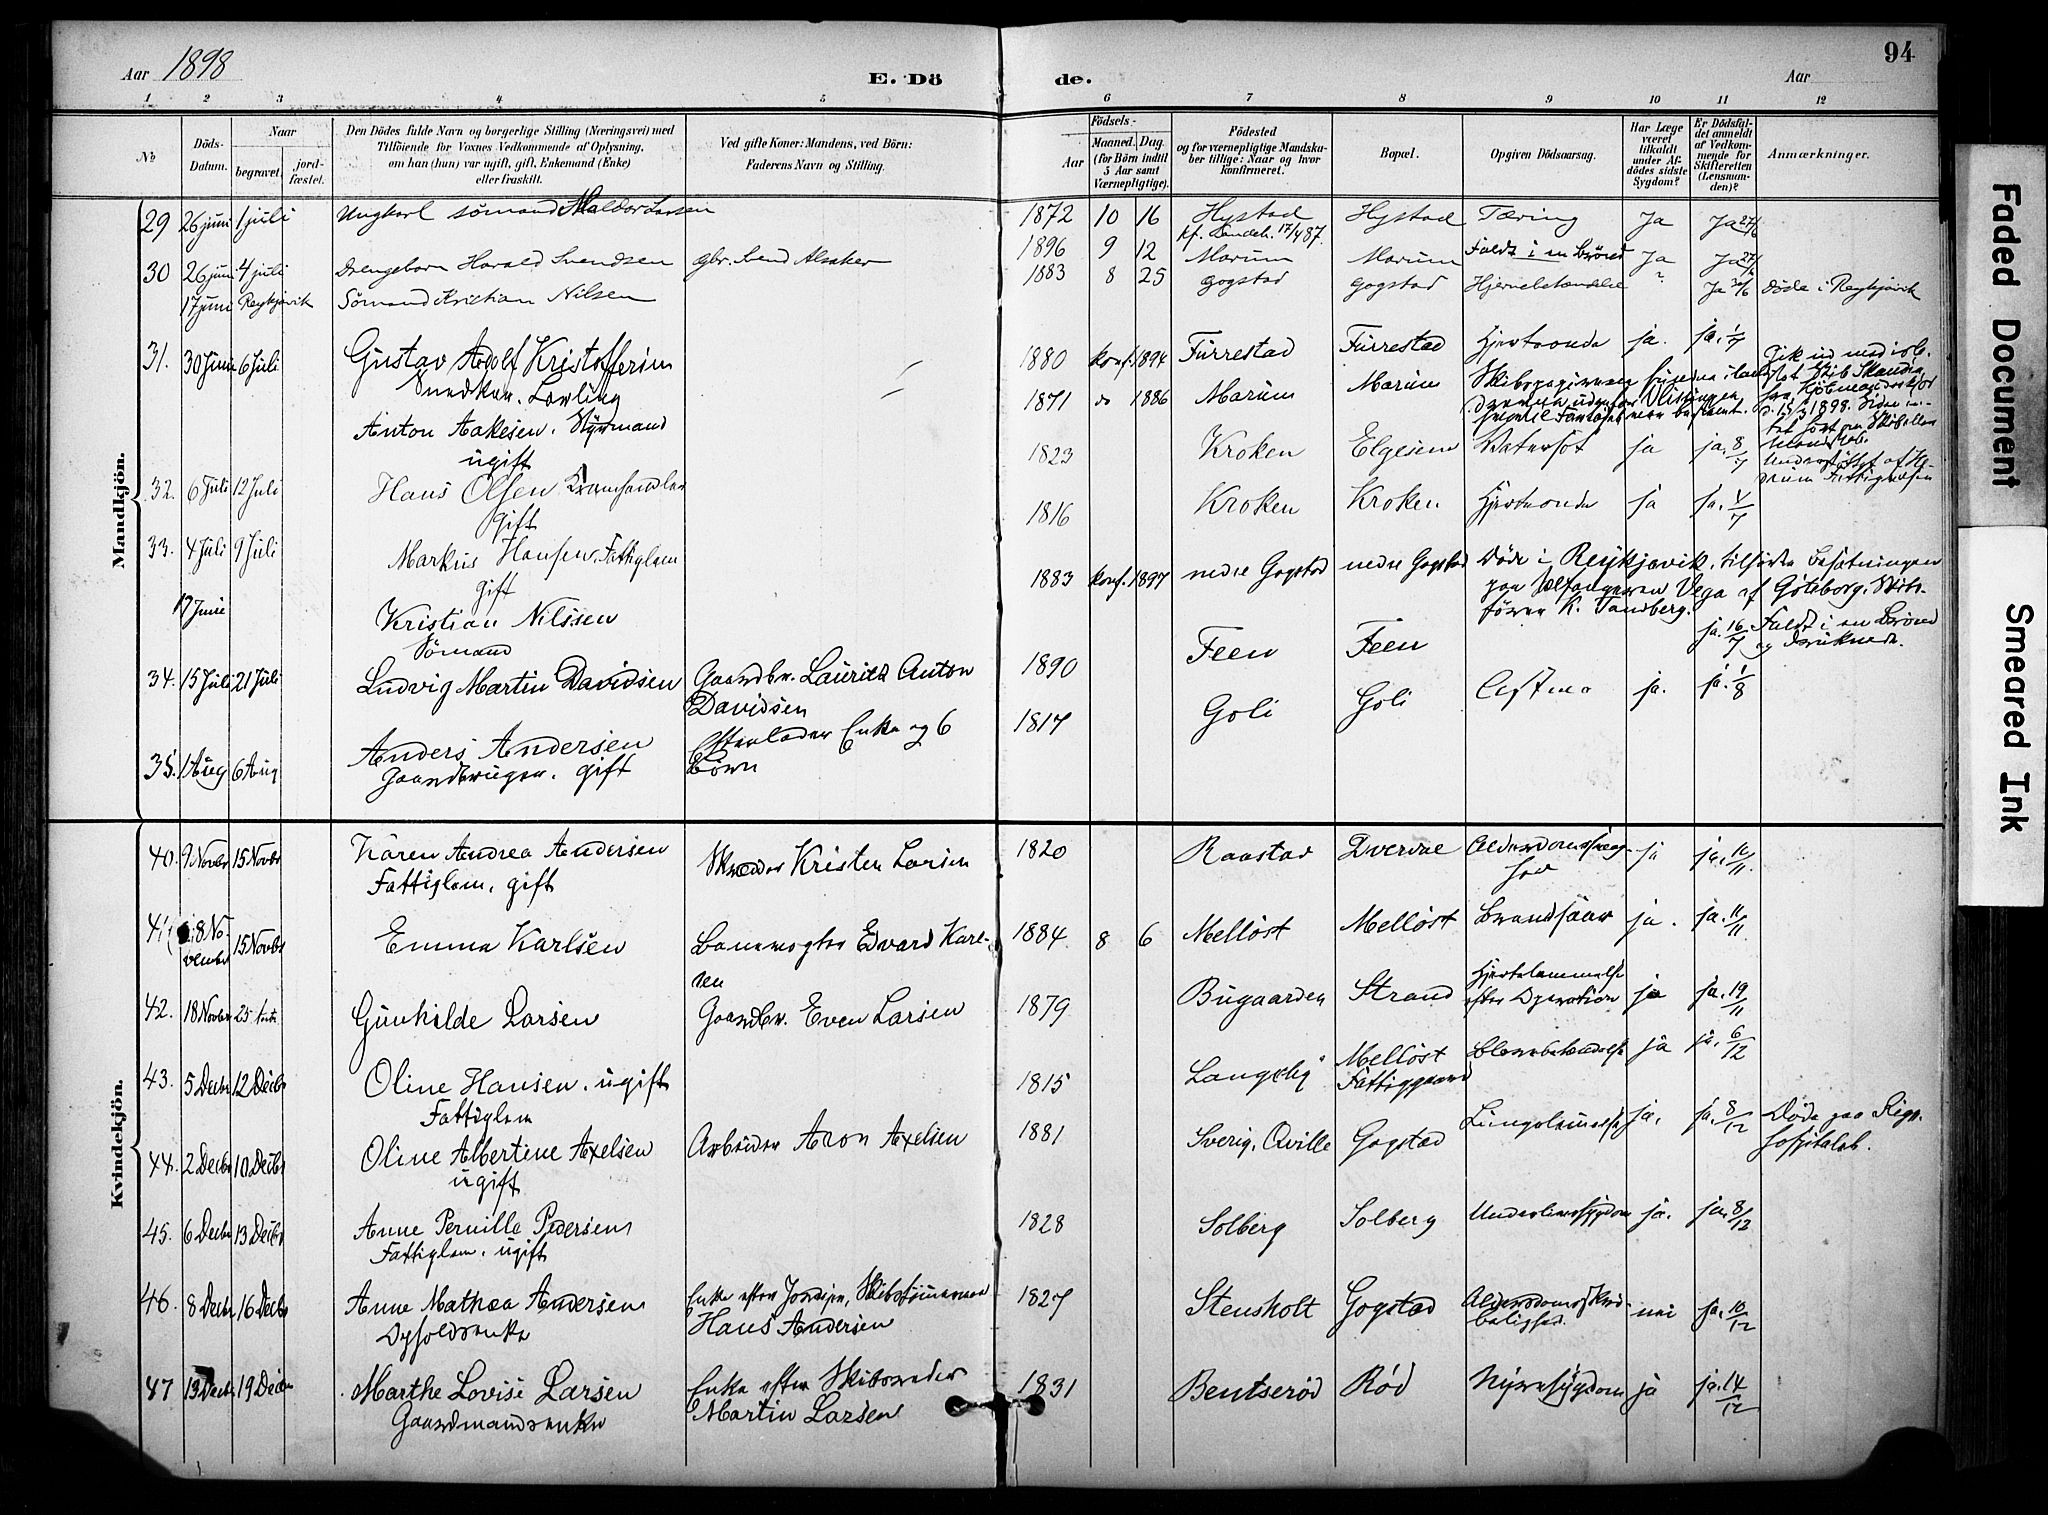 Aar 1898
E. Dö de.
Aar
94
1 2 3 4 5 6 7 8 9 10 11 12
No
Döds-Datum.
Naar
begravet.
jordfæstet.
Den Dödes fulde Navn og borgerlige Stilling (Næringsvei) med
Tilföiende for Voxnes Vedkommende af Oplysning,
om han (hun) var ugift, gift, Enkemand (Enke)
eller fraskilt.
Ved gifte Koner: Mandens, ved Börn:
Faderens Navn og Stilling.
Födsels-
Aar
Maaned. Dag.
(for Börn indtil
5 Aar samt
Værnepligtige).
Födested
og for værnepligtige Mandska-
ber tillige: Naar og hvor
konfirmeret.
Bopæl.
Opgiven Dödsaarsag.
Har Læge
været
tilkaldt
under Af-
dödes sidste
Sygdom?
Er Dödsfal-
det anmeldt
af Vedkom-
mende for
Skifteretten
(Lensman-
den)?
Anmærkninger.
Mandkjön.
29 26 juni 1 juli Ungkarl sömand Larsen 1872 10 16 Hystad Hystad Tæring Ja Ja 27/6
kf. Sandeh. 17/4 87.
30 26 juni 4 juli Drengebarn Harald Svendsen gbr. Svend Alsaker 1896 9 12 Marum Marum Faldt i en Brönd Ja Ja 27/6
17 juni Reykjavik Sömand Kristian Nilsen 1883 8 25 gogstad gogstad Hjernebetændelse ? Ja Döde i Reykjavik
31. 30 Juni 6 Juli Gustav Adolf Kristoffersen 1880 konf. 1894 Furrestad Furrestad Hjerteonde ja. ja. 1/7
Snedker. Lærling
Anton Aakesen. Styrmand 1871 do 1886 Marum Marum
ugift
Gik ud med
Skib Skandia
fra
15/3 1898. Siden
32. 6 Juli 12 Juli Hans Olsen Kramhandler 1823 Kroken Elgesem Vatersot ja ja. 8/7
gift
Understöttet af
Fattigvæsen
33. 4 Juli 9 Juli Markus Hansen, Fattiglem 1816 Kroken Kroken Hjerteonde ja ja. /7
gift
17 Juni Kristian Nilssen 1883 konf. 1897 nedre Gogstad nedre Gogstad Döde i Reykjavik, tilhörte Besætningen
Sömand
paa Vega af Göteborg. Skibs-
förer K. Tandberg.
34. 15 Juli 21 Juli Ludvig Martin Davidsen Gaardbr. Laurits Anton 1890 Feen Feen ja. 16/7 Faldt i en Brönd
Davidsen
og druknede.
35. 1 Aug 6 Aug Anders Andersen Efterlader Enke og 6 1817 Goli Goli Astma ja. ja. 1/8
Gaardbruger. gift Börn
Kvindekjön.
40. 9 Novbr 15 Novbr Karen Andrea Andersen Skræder Kristen Larsen 1820 Raastad Dverdal Alderdomssvag- ja ja. /11
Fattiglem. gift hed
41. 8 No- 15 Novbr Emma Karlsen Banevogter Edvard Karl- 1884 8 6 Mellöst Mellöst Brandsaar ja. ja. 11/11
vember sen
42. 18 Novbr 25 Gunhilde Larsen Gaardbr. Even Larsen 1879 Bugaarden Strand Hjertelammelse ja ja. 19/11
efter Operation
43. 5 Decbr 12 Decbr Oline Hansen. ugift 1815 Langeby Mellöst Blærebetændelse ja ja. 6/12
Fattiglem Fattiggaard
44. 2 Decbr 10 Decbr Oline Albertine Axelsen Arbeider Aron Axelsen 1881 Sverig. Qville Gogstad ja. ja. 8/12 Döde paa Rigs-
ugift hospitalet.
45. 6 Decbr 13 Decbr Anne Pernille Pedersen 1828 Solberg Solberg Underlivssygdom ja. ja. 8/12
Fattiglem. ugift
46. 8 Decbr 16 Decbr Anne Mathea Andersen Enke efter Skibstömmermand 1827 Stensholt Gogstad Alderdomsskrö- nei ja. 10/12
Opholdsenke Hans Andersen belighed.
47 13 Decbr 19 Decbr Marthe Lovise Larsen Enke efter Skibsreder 1831 Bentseröd Röd Nyresygdom ja ja. 14/12
Gaardmandsenke Martin Larsen
Faded Document
Smeared Ink